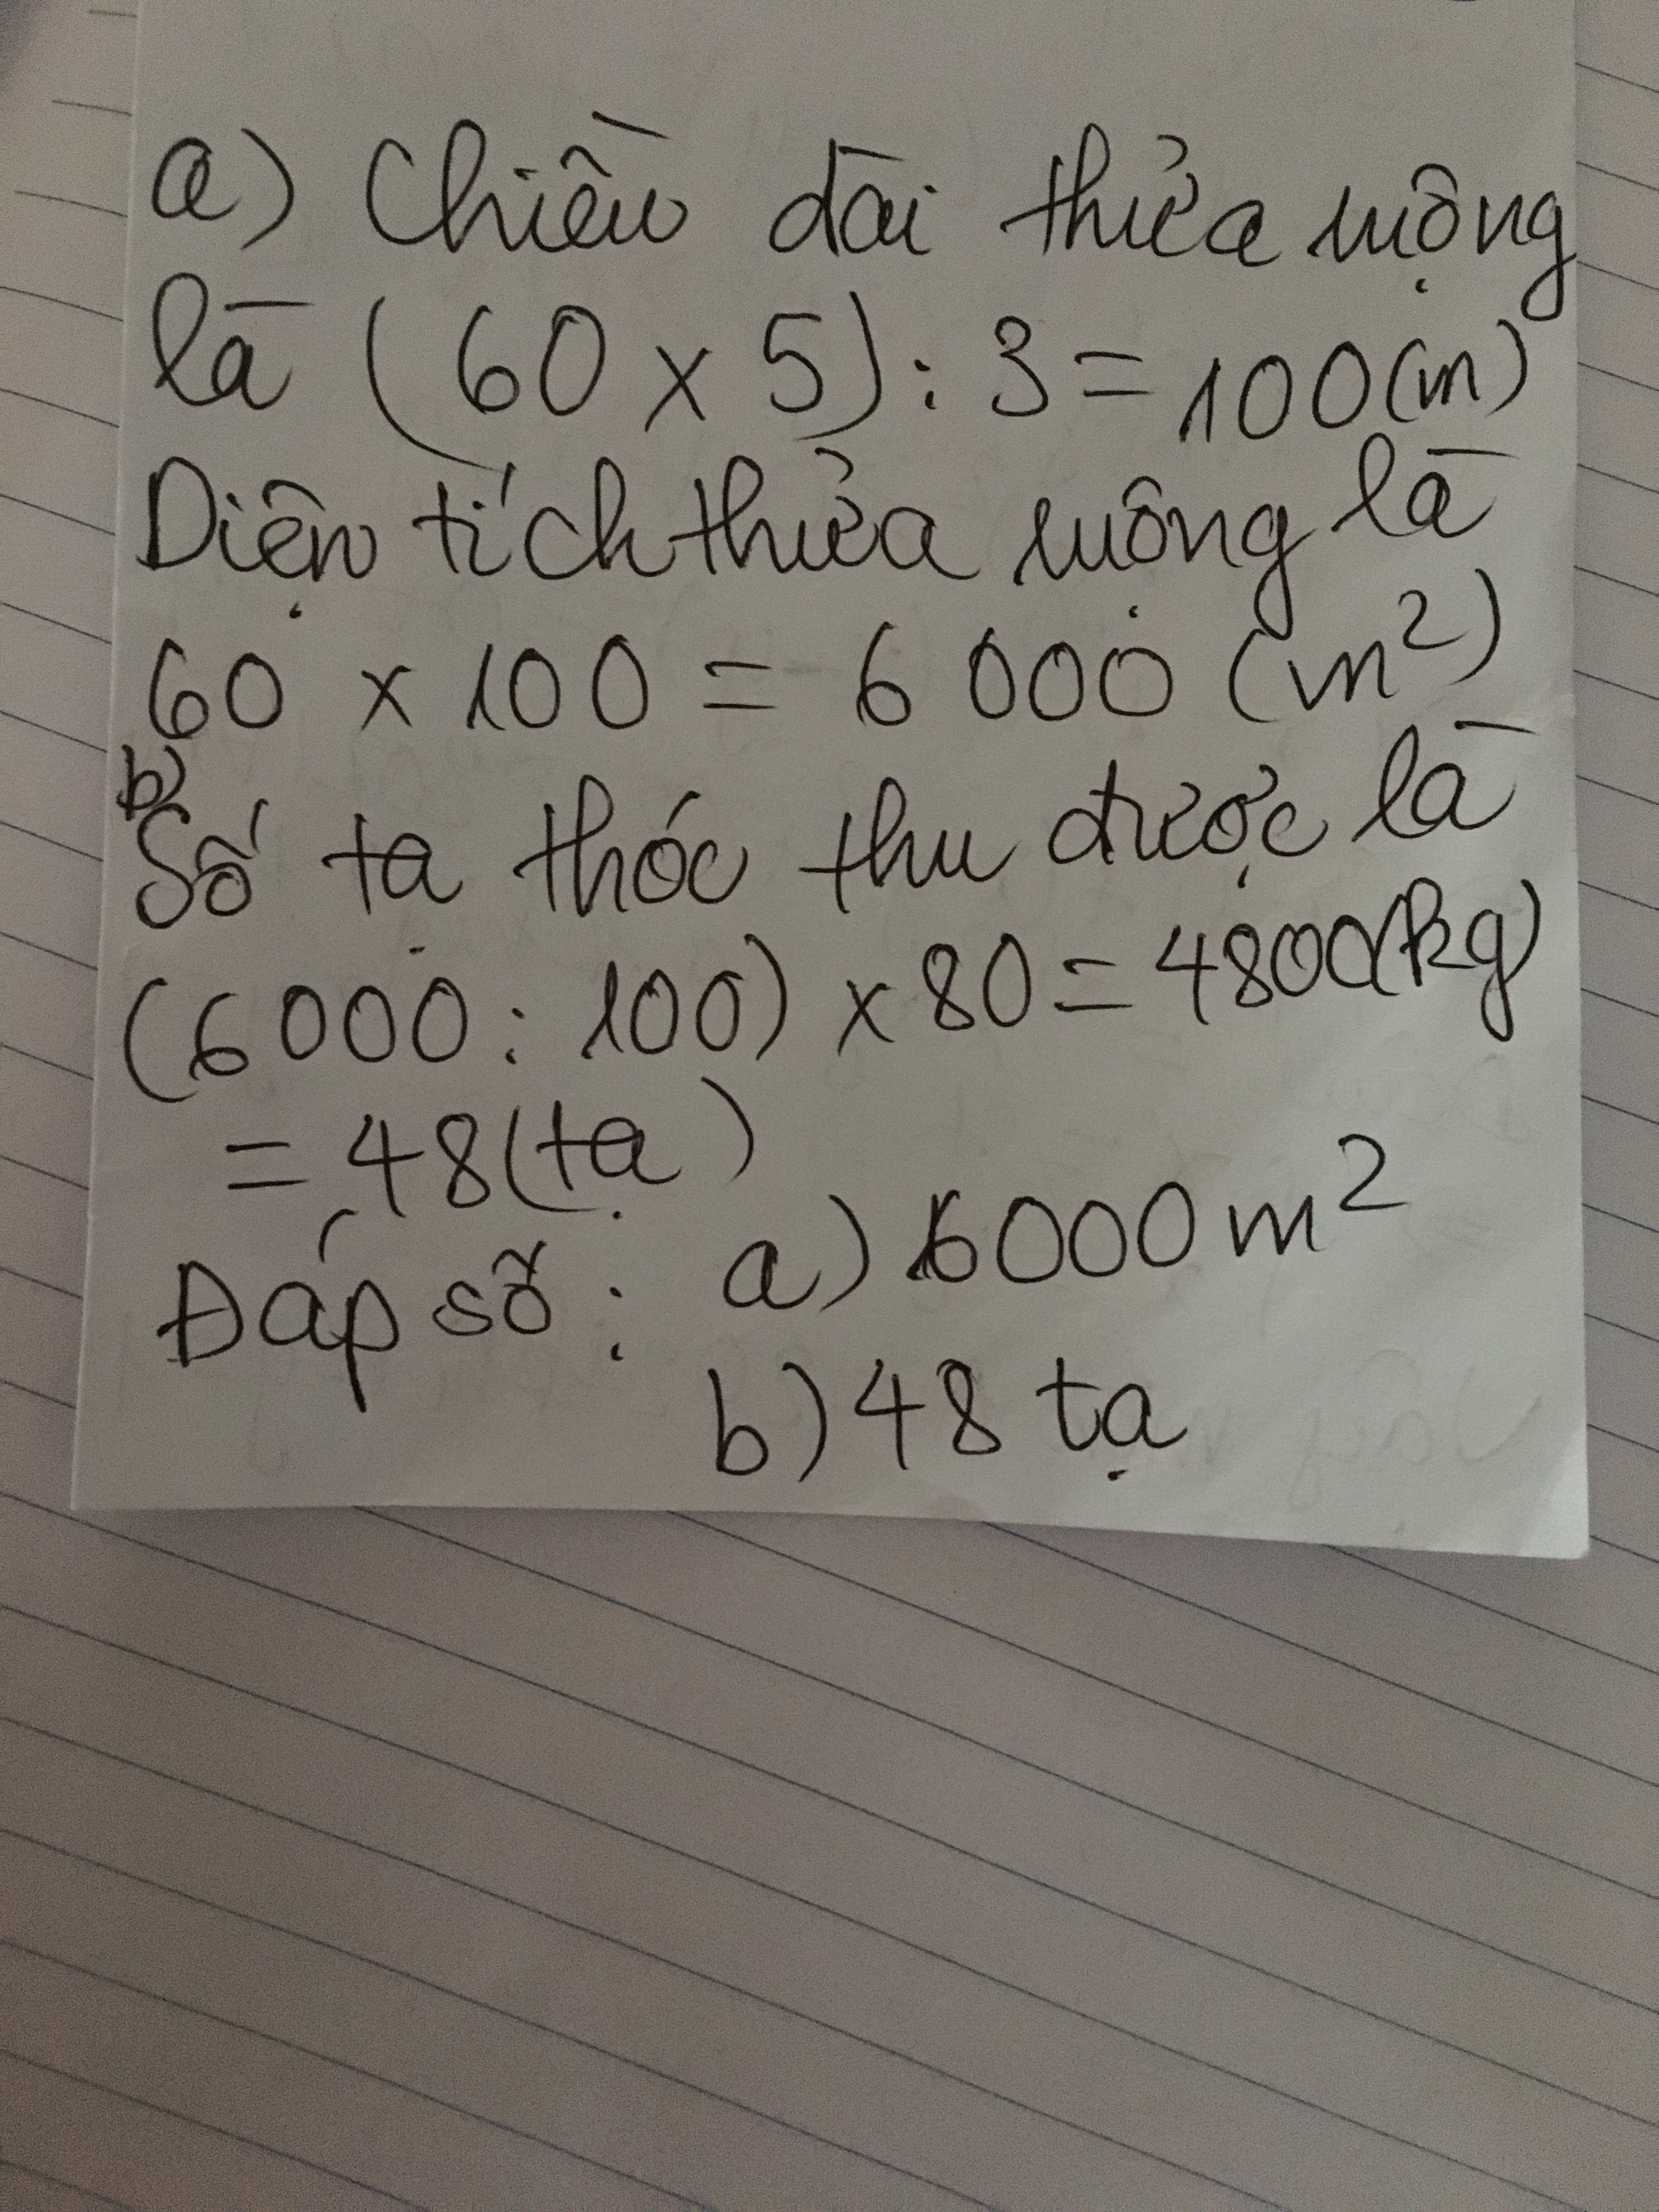 a) Chiều dài thửa ruộng
là (60 x 5) : 3 = 100 (m)
Diện tích thửa ruộng là
60 x 100 = 6 000 (m²)
b)
Số tạ thóc thu được là
(6000 : 100) x 80 = 4800 (kg)
= 48 (tạ)
Đáp số : a) 6000 m²
b) 48 tạ